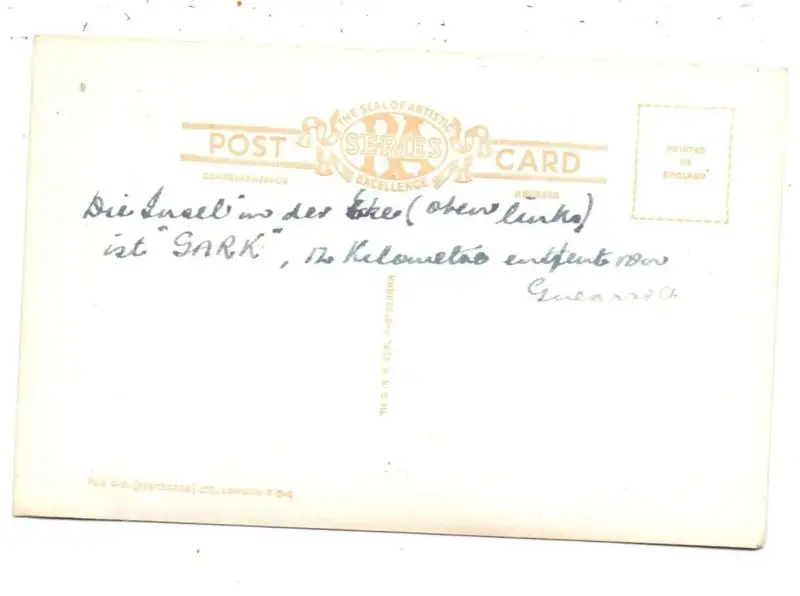 THE SEAL OF ARTISTIC
POST RA SERIES CARD
EXCELLENCE
CORRESPONDENCE
ADDRESS
PRINTED
IN
ENGLAND
Die Insel in der Ecke (oben links)
ist "SARK", 12 Kilometer entfernt von
THIS IS A REAL PHOTOGRAPH
LTD., LONDON